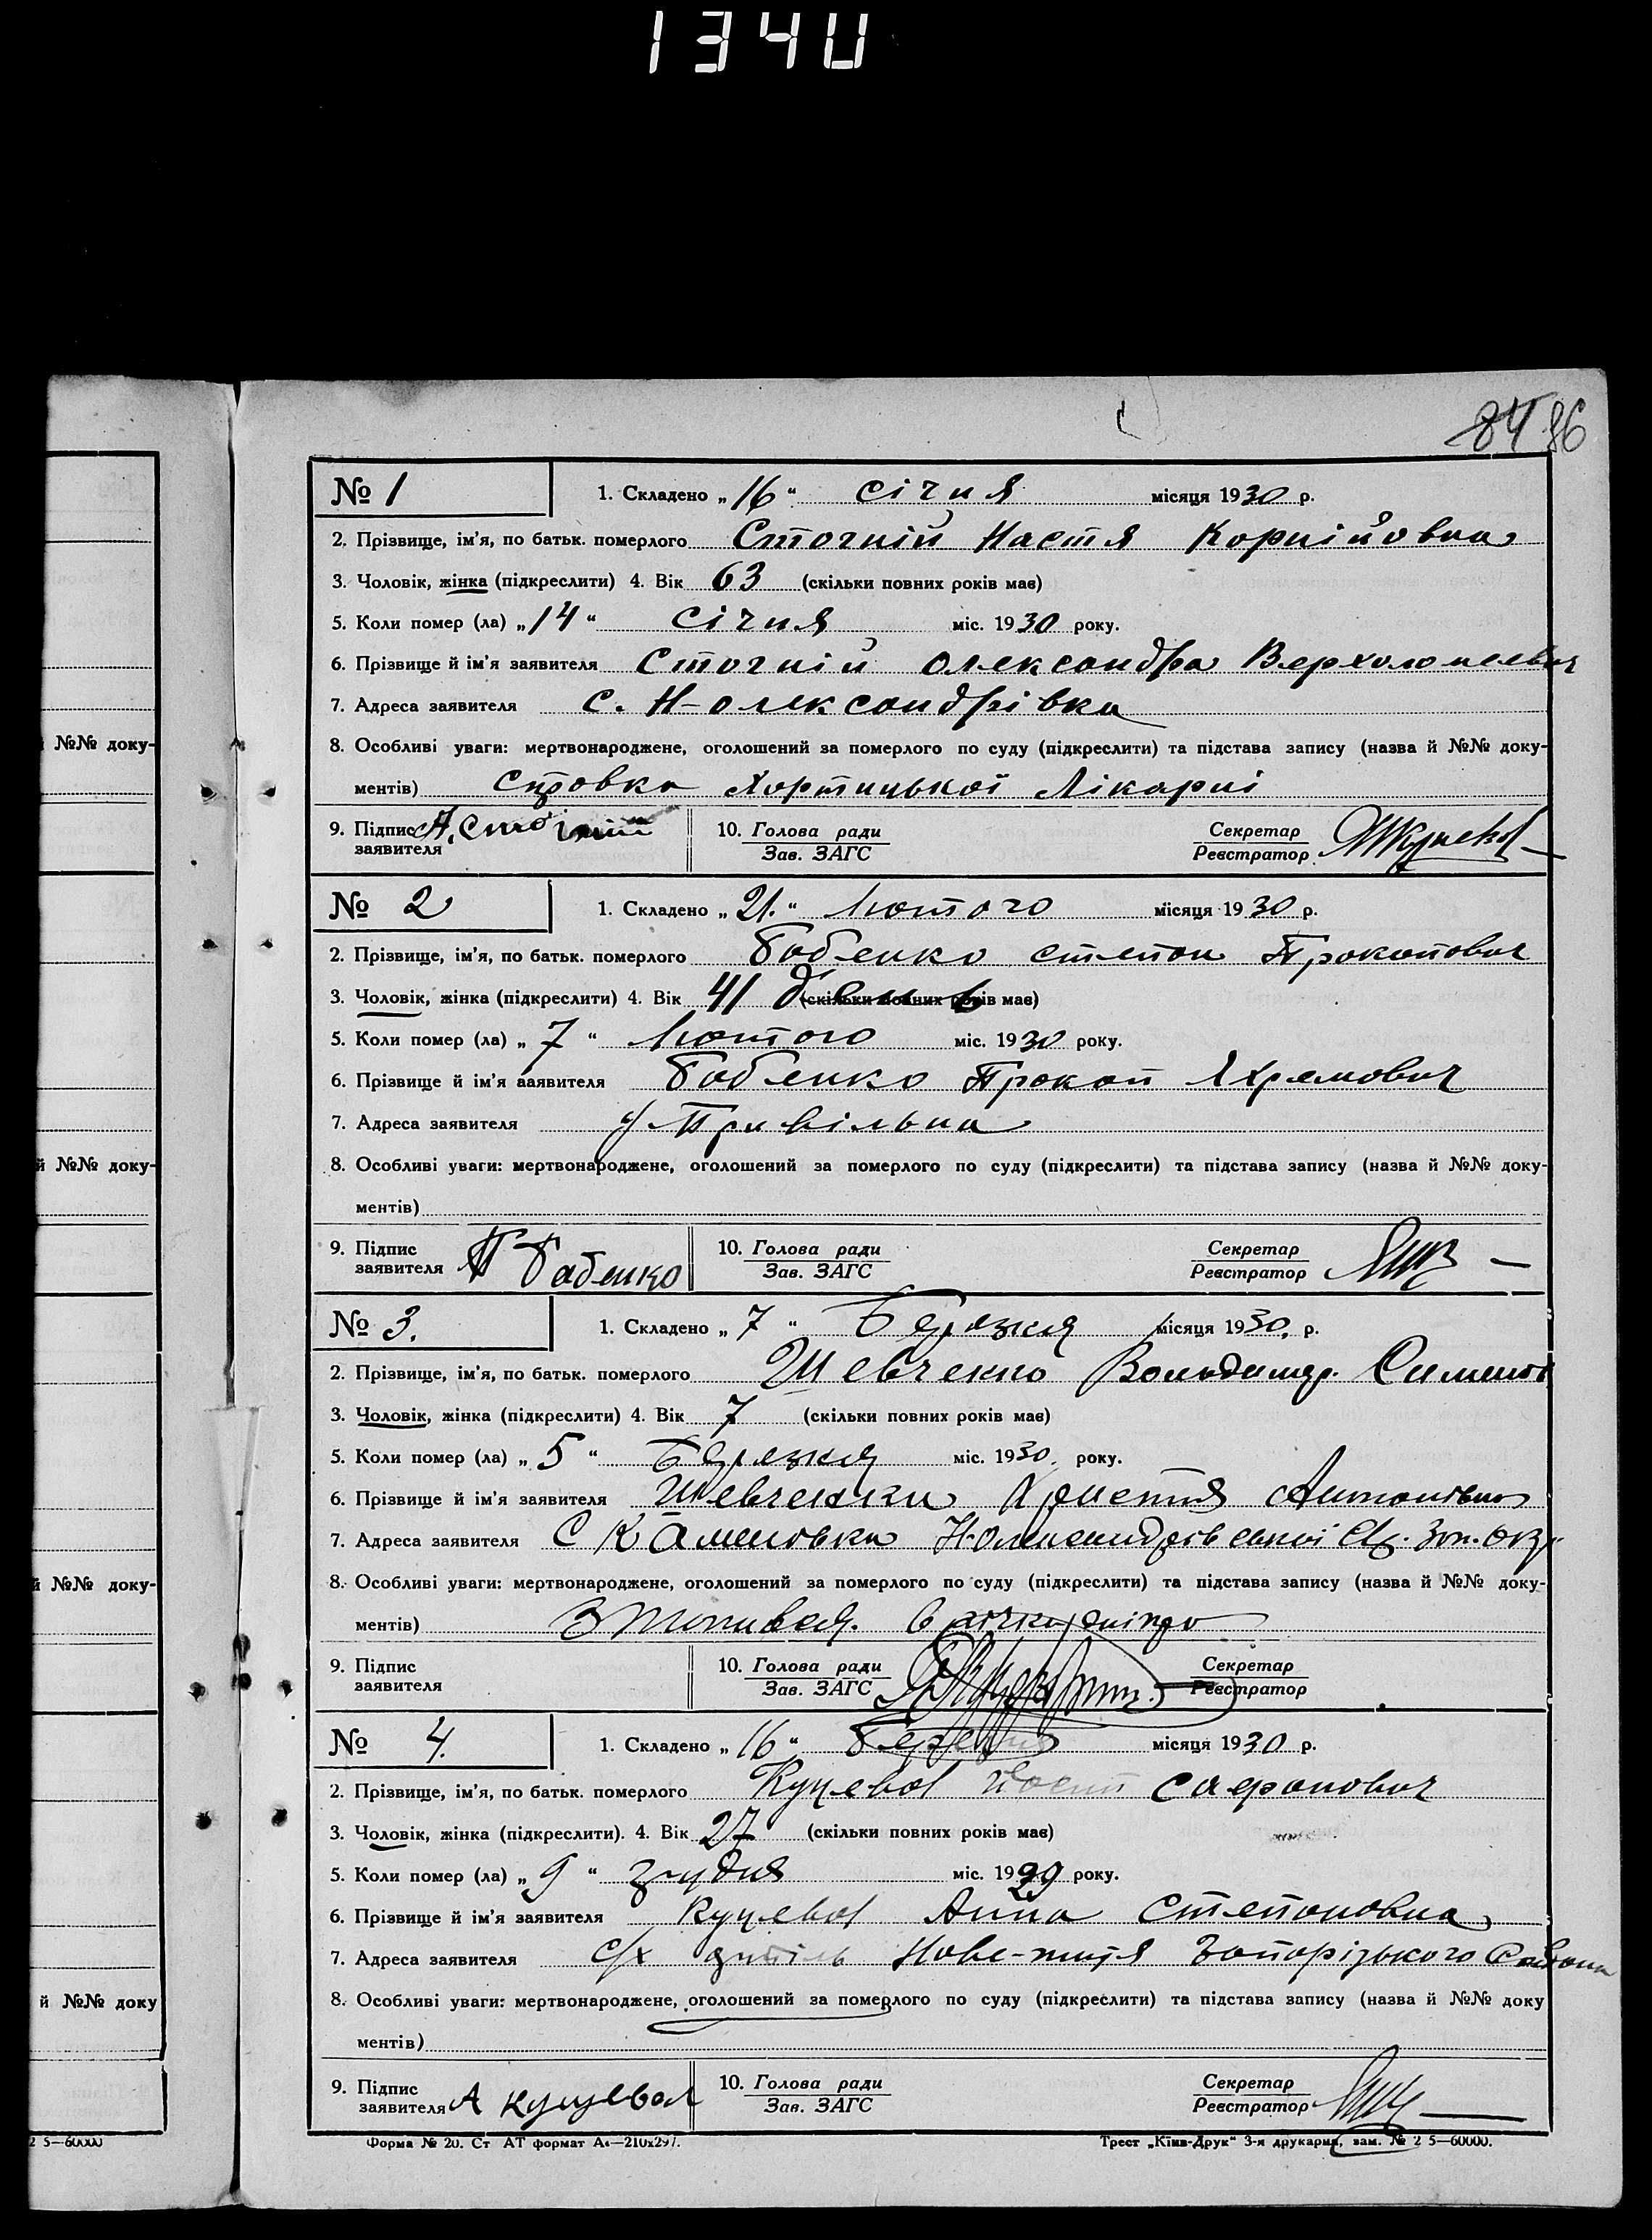 1340
84 86
№ 1 1. Складено „16“ січня місяця 1930 р.
2. Прізвище, ім'я, по батьк. померлого Сточній Настя Корнійовна
3. Чоловік, жінка (підкреслити) 4. Вік 63 (скільки повних років має)
5. Коли помер (ла) „14“ січня міс. 1930 року.
6. Прізвище й ім'я заявителя Сточній Олександра Верхоломеевич
7. Адреса заявителя с. Н-олександрівка
8. Особливі уваги: мертвонароджене, оголошений за померлого по суду (підкреслити) та підстава запису (назва й №№ доку-
ментів) Справка Хортицької Лікарні
9. Підпис заявителя А. Сточний 10. Голова ради Зав. ЗАГС Секретар Реєстратор
№ 2 1. Складено „21.“ Лютого місяця 1930 р.
2. Прізвище, ім'я, по батьк. померлого Бабенко Степан Прокопович
3. Чоловік, жінка (підкреслити) 4. Вік 41 день (скільки повних років має)
5. Коли помер (ла) „7“ Лютого міс. 1930 року.
6. Прізвище й ім'я заявителя Бабенко Прокоп Яхремович
7. Адреса заявителя Привільна
8. Особливі уваги: мертвонароджене, оголошений за померлого по суду (підкреслити) та підстава запису (назва й №№ доку-
ментів)
9. Підпис заявителя П Бабенко 10. Голова ради Зав. ЗАГС Секретар Реєстратор
№ 3. 1. Складено „7“ Березня місяця 1930. р.
2. Прізвище, ім'я, по батьк. померлого Шевченко Володимир.
3. Чоловік, жінка (підкреслити) 4. Вік 7 (скільки повних років має)
5. Коли помер (ла) „5“ Березня міс. 1930. року.
6. Прізвище й ім'я заявителя Шевченко Христя Антонівна
7. Адреса заявителя С Каменовка Н-Олександрівської С/р. Зап. Окр.
8. Особливі уваги: мертвонароджене, оголошений за померлого по суду (підкреслити) та підстава запису (назва й №№ доку-
ментів) в річку Дніпро
9. Підпис заявителя 10. Голова ради Зав. ЗАГС Секретар Реєстратор
№ 4. 1. Складено „16“ Березня місяця 1930 р.
2. Прізвище, ім'я, по батьк. померлого Куцевол Сафронович
3. Чоловік, жінка (підкреслити). 4. Вік 27 (скільки повних років має)
5. Коли помер (ла) „9“ грудня міс. 1929 року.
6. Прізвище й ім'я заявителя Куцевол Анна Степоновна
7. Адреса заявителя с/х артіль Нове-життя Запорізького Району
8. Особливі уваги: мертвонароджене, оголошений за померлого по суду (підкреслити) та підстава запису (назва й №№ доку
ментів)
9. Підпис заявителя А Куцевол 10. Голова ради Зав. ЗАГС Секретар Реєстратор
Форма № 20. Ст АТ формат А4—210х297. Трест „Київ-Друк“ 3-я друкарня, зам. № 2 5—60000.
№№ доку-
й №№ доку-
й №№ доку-
й №№ доку
2 5—60000